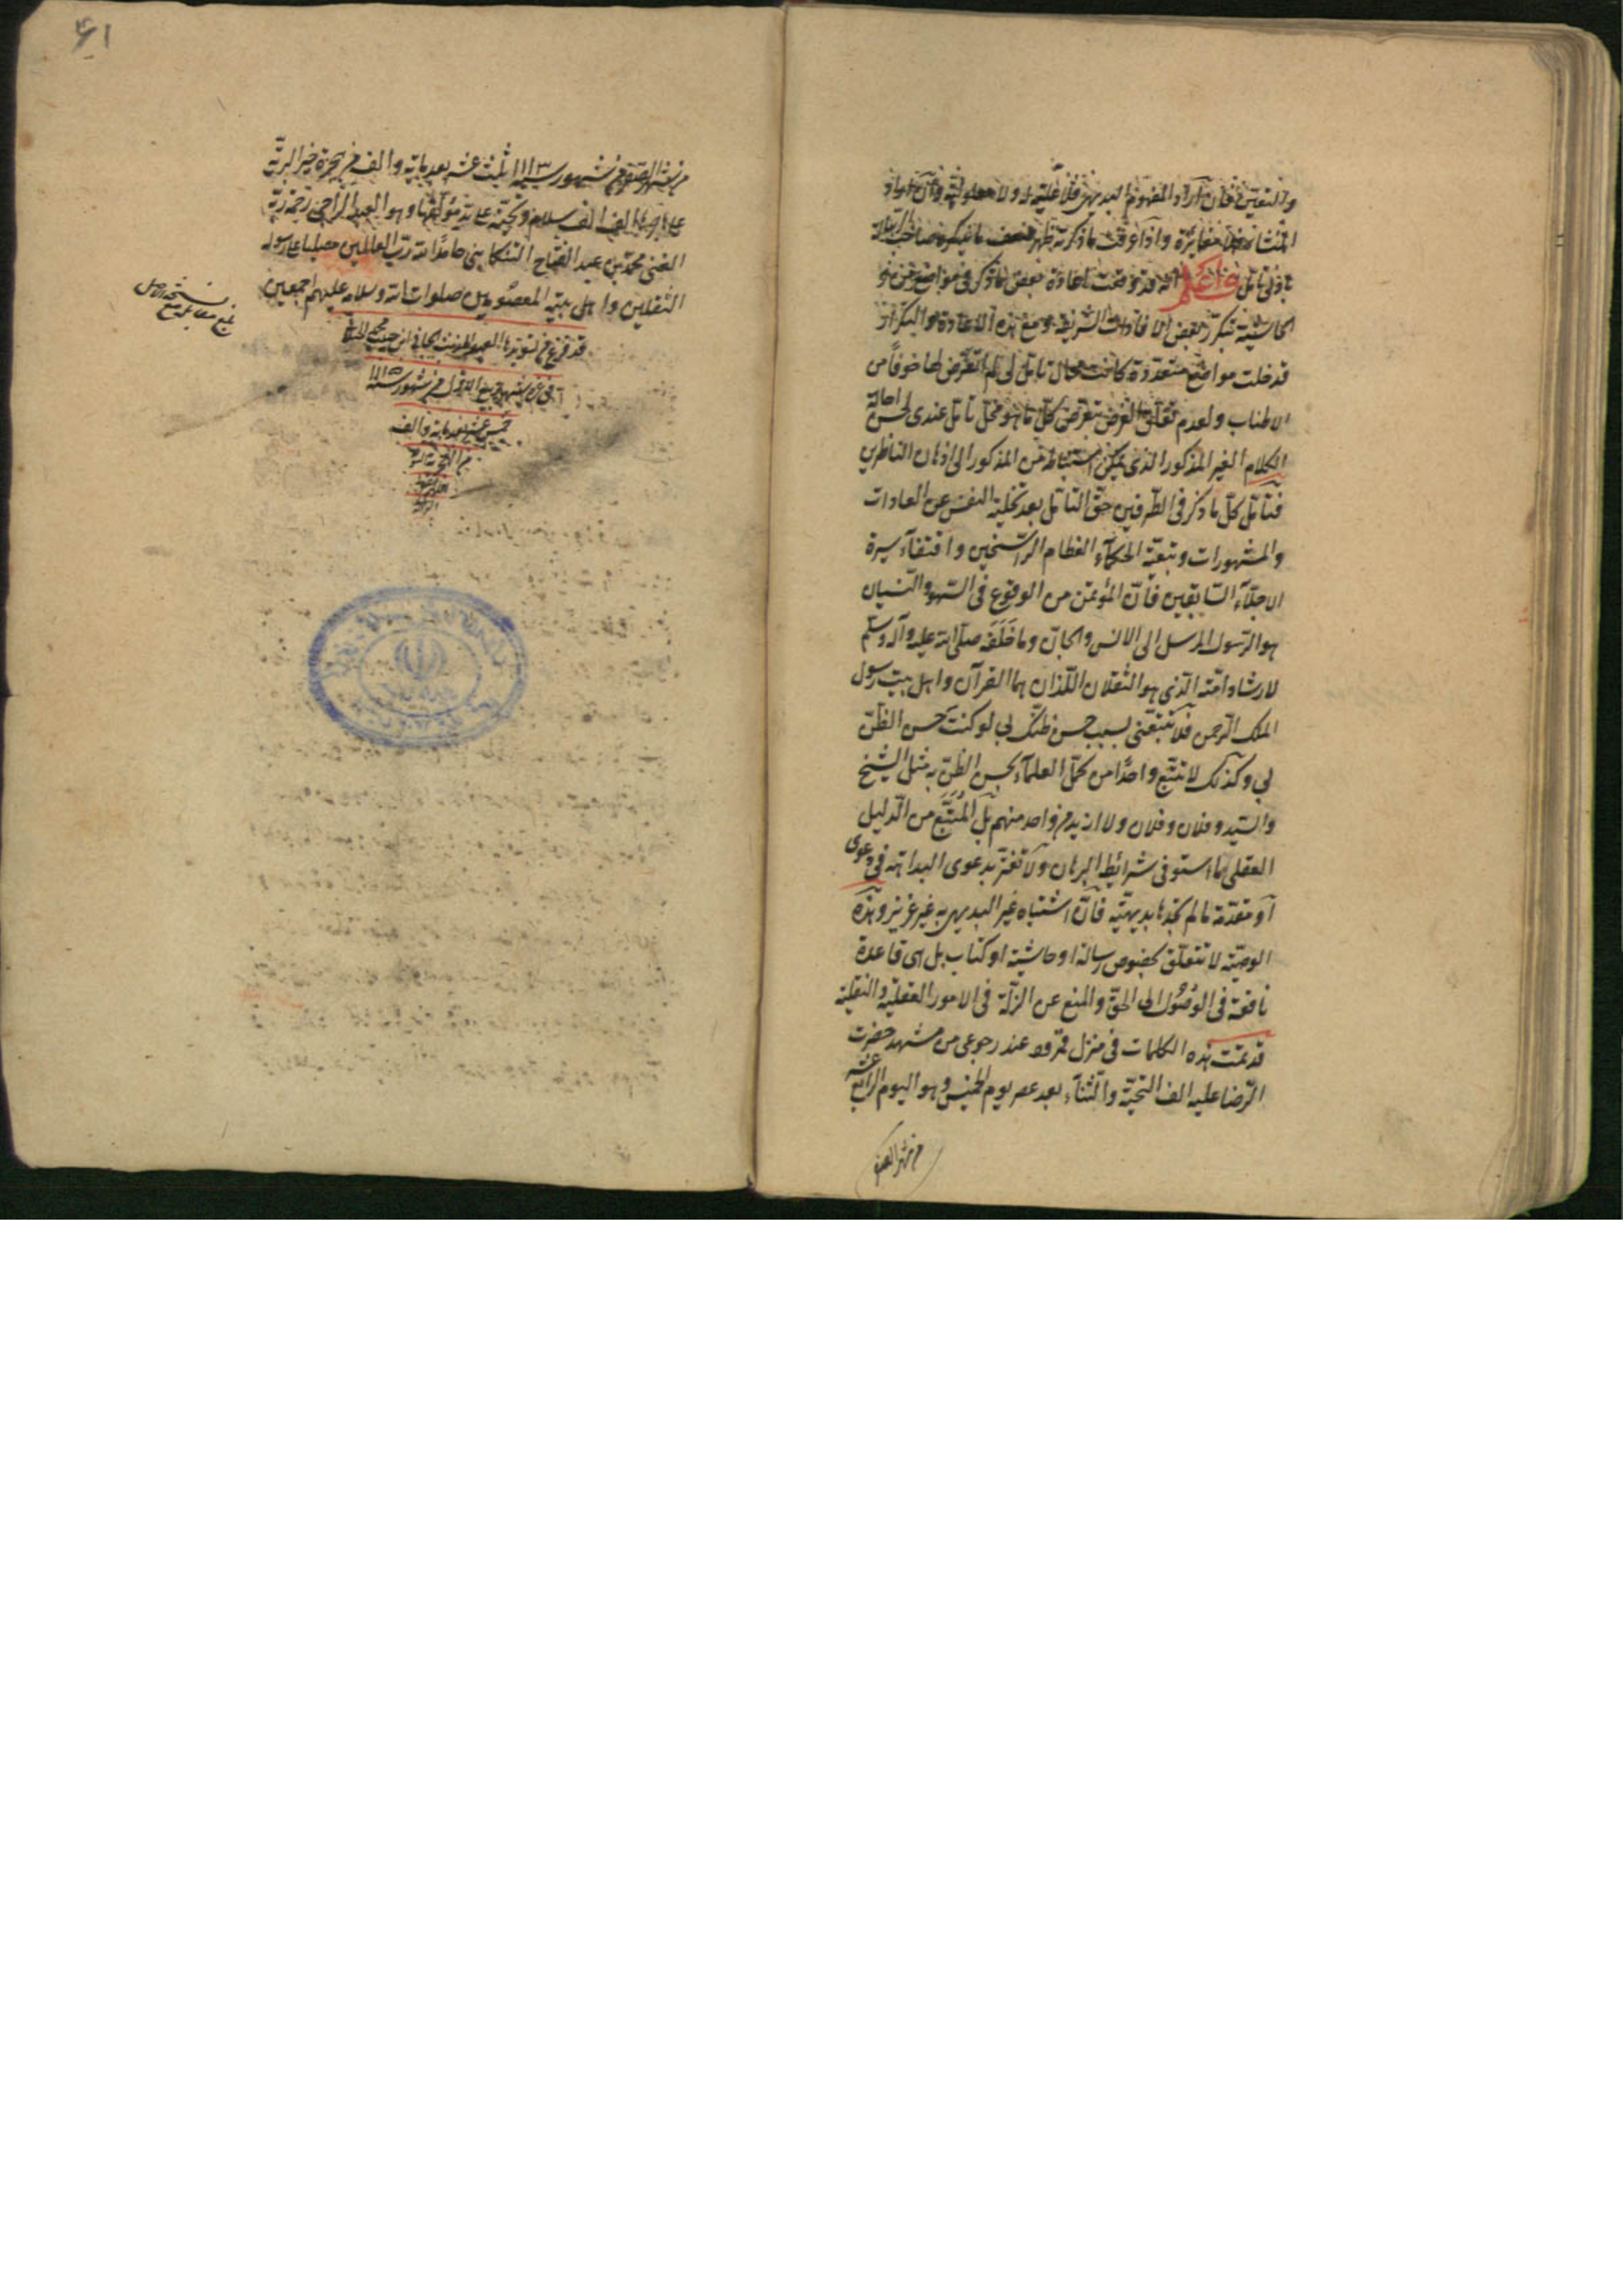 والتعین فان اراد المفهوم البدیهی فلا علیة له ولا معلولیة وان اراد
المنشأ فلا مغایرة واذا عرفت ما ذکرته ظهر ضعف ما
بادنی تأمل واعلم انه قد وقعت اعادة بعض ما ذکر فی مواضع من
الحاشیة بتکرر بعض الافادات الشریفة ومع هذه الاعادة والتکرار
قد خلت مواضع متعددة کانت محال تأمل لی لم اتعرض لها خوفاً من
الاطناب ولعدم تعلق الغرض بتعرض کل ما هو محل تأمل عندی لحسن احالة
الکلام الغیر المذکور الذی یمکن استنباطه من المذکور الی اذهان الناظرین
فتأمل کل ما ذکر فی الطرفین حق التأمل بعد تخلیة النفس عن العادات
والمشهورات وتبعیة الحکمآء العظام الراسخین واقتفآء سیرة
الاجلآء السابقین فان المؤتمن من الوقوع فی السهو والنسیان
هو الرسول المرسل الی الانس والجان وما خلفه صلی الله علیه وآله وسلم
لارشاد امته الذی هو الثقلان اللذان هما القرآن واهل بیت رسول
الملک الرحمن فلا تتبعنی بسبب حسن ظنک بی لو کنت حسن الظن
بی وکذلک لا تتبع واحدًا من کمل العلمآء بحسن الظن به مثل الشیخ
والسید وفلان وفلان ولا ازید من واحد منهم بل المتبع من الدلیل
العقلی ما استوفی شرائط البرهان ولا تغتر بدعوی البداهة فی دعوی
او مقدمة ما لم تجدها بدیهیة فان اشتباه غیر البدیهی به غیر عزیز وهذه
الوصیة لا تتعلق بخصوص رسالة او حاشیة او کتاب بل هی قاعدة
نافعة فی الوصول الی الحق والمنع عن الزلة فی الامور العقلیة والنقلیة
قد تمت هذه الکلمات فی منزل عند رجوعی من مشهد حضرت
الرضا علیه الف التحیة والثنآء بعد عصر یوم الخمیس وهو الیوم الرابع عشر
من شهر الصفر
۶۱
من شهر الصفر من شهور سنة ۱۱۱۳ ثلث عشر بعد مایة والف من هجرة خیر البریة
علی هاجرها الف الف سلام وتحیة علی ید مؤلفها وهو العبد الراجی رحمة ربه
الغنی محمد بن عبد الفتاح التنکابنی حامدًا لله رب العالمین مصلیا علی رسول
الثقلین واهل بیته المعصومین صلوات الله وسلامه علیهم اجمعین
بلغ مقابلة مع نسخة الاصل
قد فرغ من تسویدها العبد المذنب الجانی ابن
فی شهر ربیع الاول من شهور سنة ۱۱۱۵
خمس عشر بعد مایة والف
من الهجرة